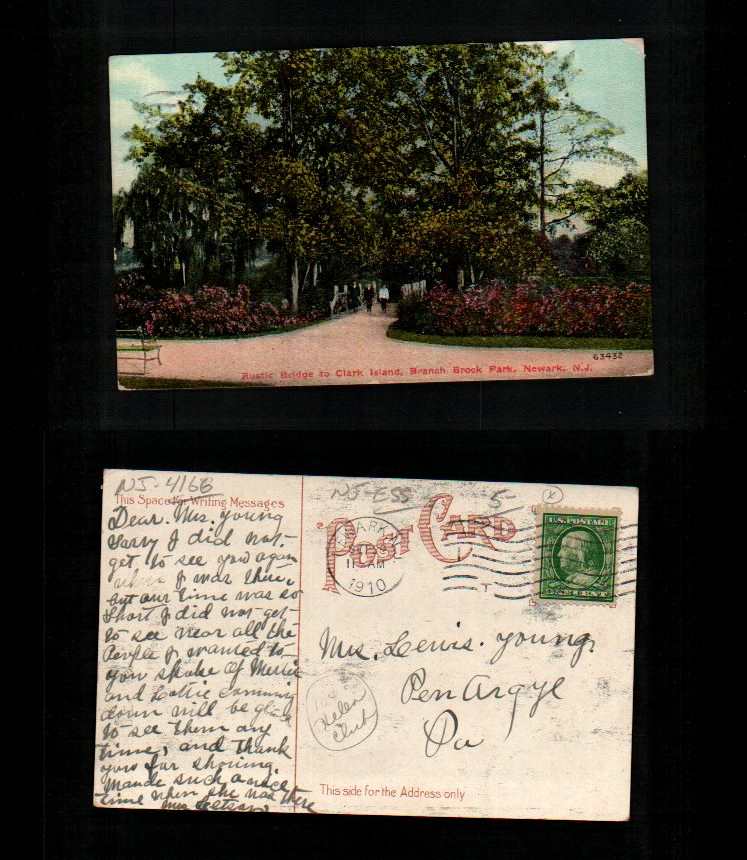 63432
Rustic Bridge to Clark Island, Branch Brook Park, Newark, N.J.
NJ-4168
NJ-ESS
5-
X
This Space for Writing Messages
Dear. Mrs. Young
Sorry I did not-
get, to see you again
when I was there,
but our time was so
short I did not get
to see near all the
People I wanted to
you spoke of Mertie
and Lottie Comming
down will be glad
to see them any
time, and thank
you for showing
Maude such a nice
time when she was there
Mrs
POST CARD
NEWARK
11 AM
1910
U.S. POSTAGE
ONE CENT
Mrs. Lewis. Young,
Pen Argyl
Pa
Helen
Clark
This side for the Address only